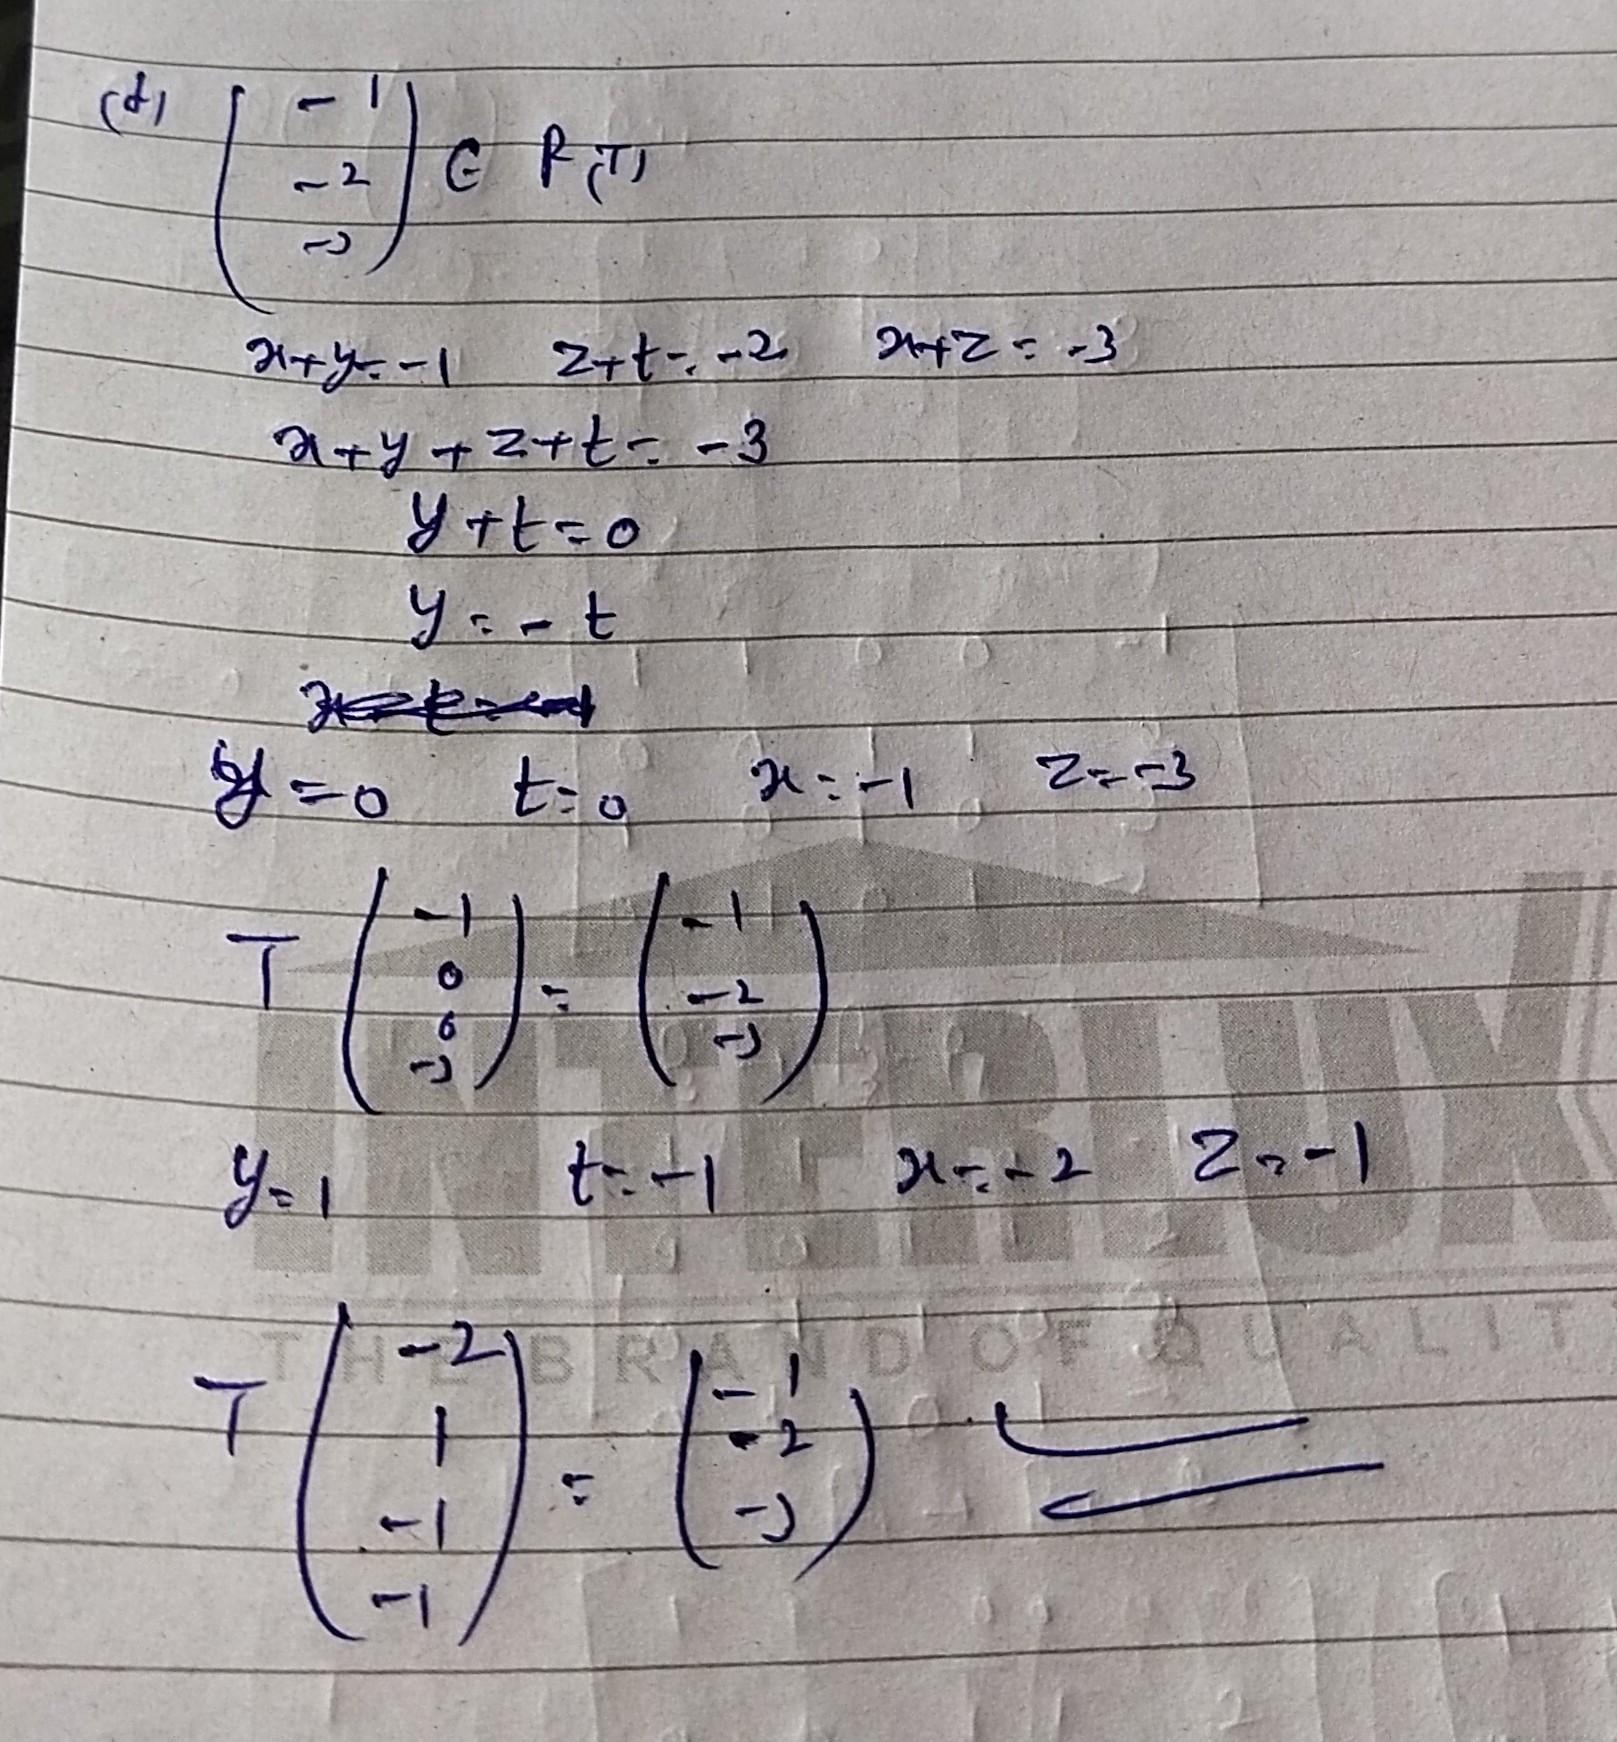 (d) ( -1 -2 -3 ) ∈ R(T)
x+y=-1 z+t=-2 x+z=-3
x+y+z+t=-3
y+t=0
y=-t
y=0 t=0 x=-1 z=-3
T ( -1 0 0 -3 ) = ( -1 -2 -3 )
y=1 t=-1 x=-2 z=-1
T ( -2 1 -1 -1 ) = ( -1 -2 -3 )
INTERLUX
THE BRAND OF QUALIT